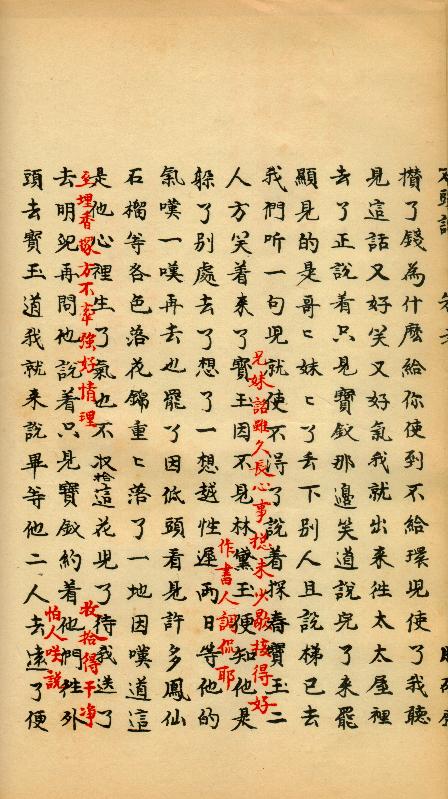 攅了錢為什麽給你使到不給環兒使了我聽
見這話又好笑又好氣我就出来徃太太屋裡
去了正說着只見寳釵那邉笑道說完了來罷
顯見的是哥〻妹〻了丢下别人且說梯己去
我們听一句兒就使不得了說着探春寳玉二
兄妹話雖久長心事揔未少歇接得好
人方笑着来了寳玉因不見林黛玉便知他是
作書人調侃耶
躱了别處去了想了一想越性遲兩日等他的
氣嘆一嘆再去也罷了因低頭看見許多鳳仙
石榴等各色落花錦重〻落了一地因嘆道這
是他心裡生了氣也不收拾這花兒了待我送了
至埋香塚方不牽強好情理
收拾得干净
去明兒再問他說着只見寳釵約着他們徃外
怕人咲説
頭去寳玉道我就来說畢等他二人去遠了便